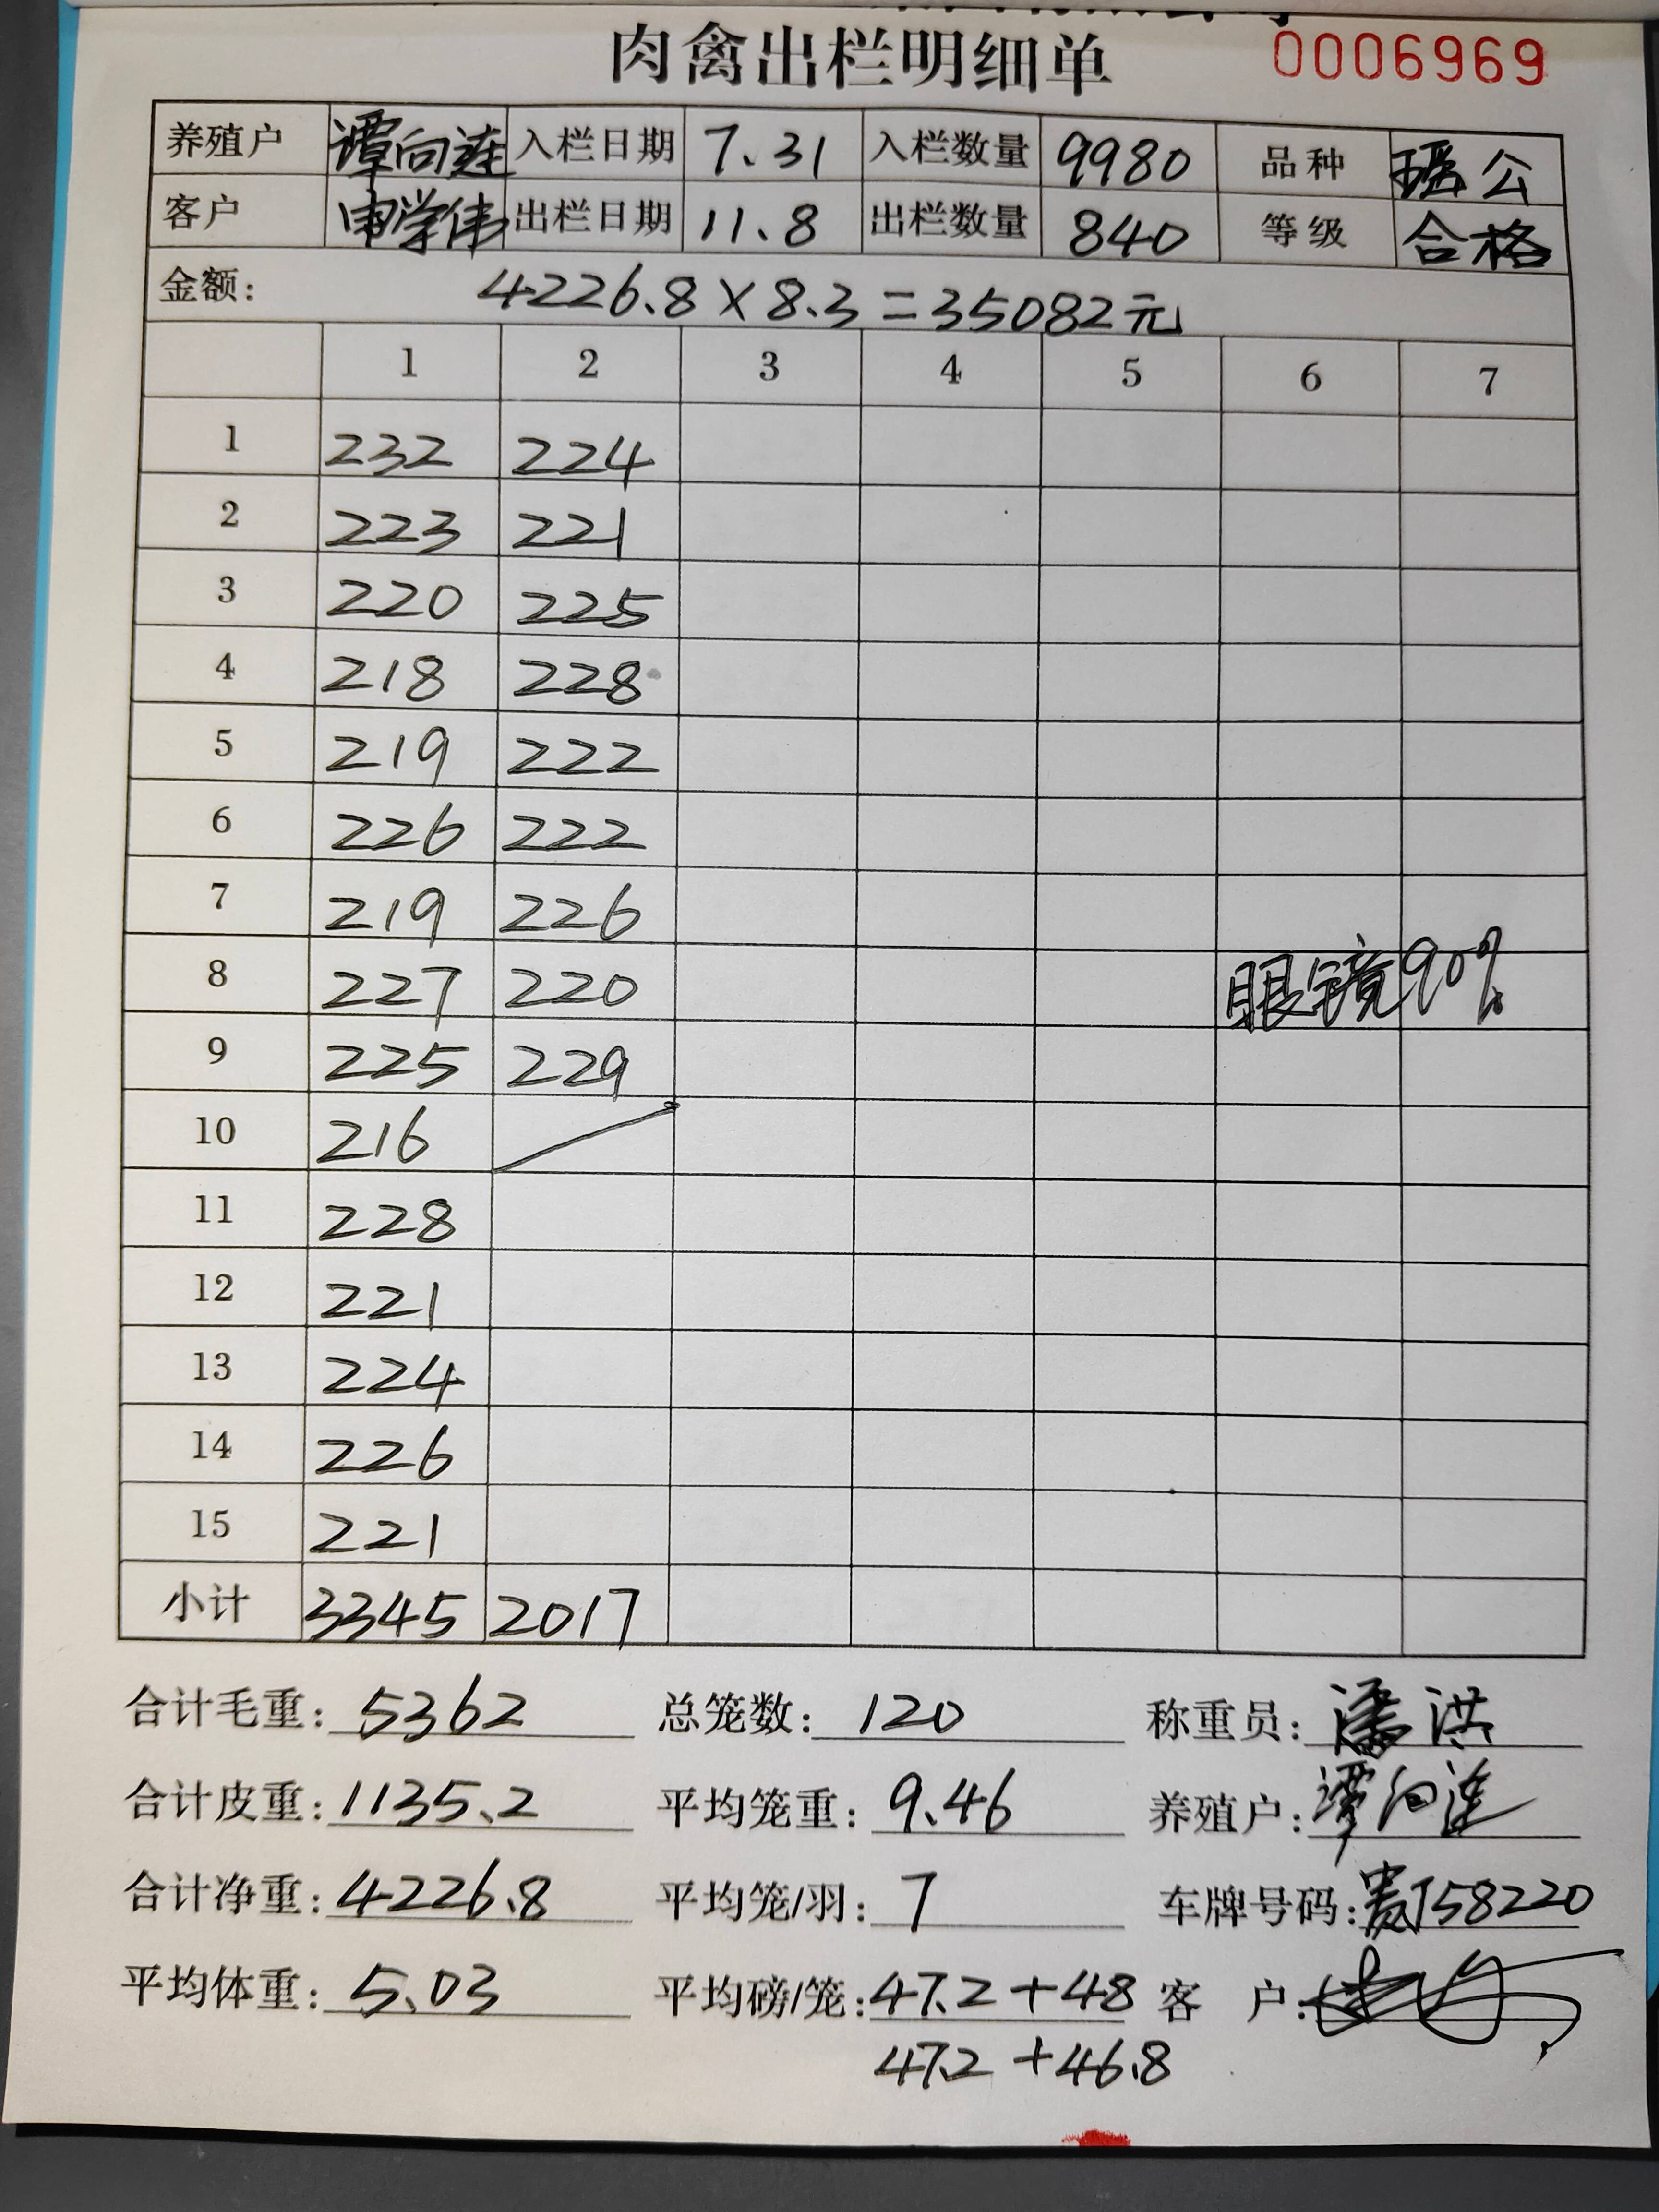 肉禽出栏明细单 0006969
养殖户 谭向连 入栏日期 7.31 入栏数量 9980 品种 瑶公
客户 申学伟 出栏日期 11.8 出栏数量 840 等级 合格
金额: 4226.8×8.3=35082元
1 2 3 4 5 6 7
1 232 224
2 223 221
3 220 225
4 218 228
5 219 222
6 226 222
7 219 226
8 227 220 眼镜90%
9 225 229
10 216
11 228
12 221
13 224
14 226
15 221
小计 3345 2017
合计毛重: 5362 总笼数: 120 称重员: 潘洪
合计皮重: 1135.2 平均笼重: 9.46 养殖户: 谭向连
合计净重: 4226.8 平均笼/羽: 7 车牌号码: 贵J58220
平均体重: 5.03 平均磅/笼: 47.2+48 客 户:
47.2+46.8